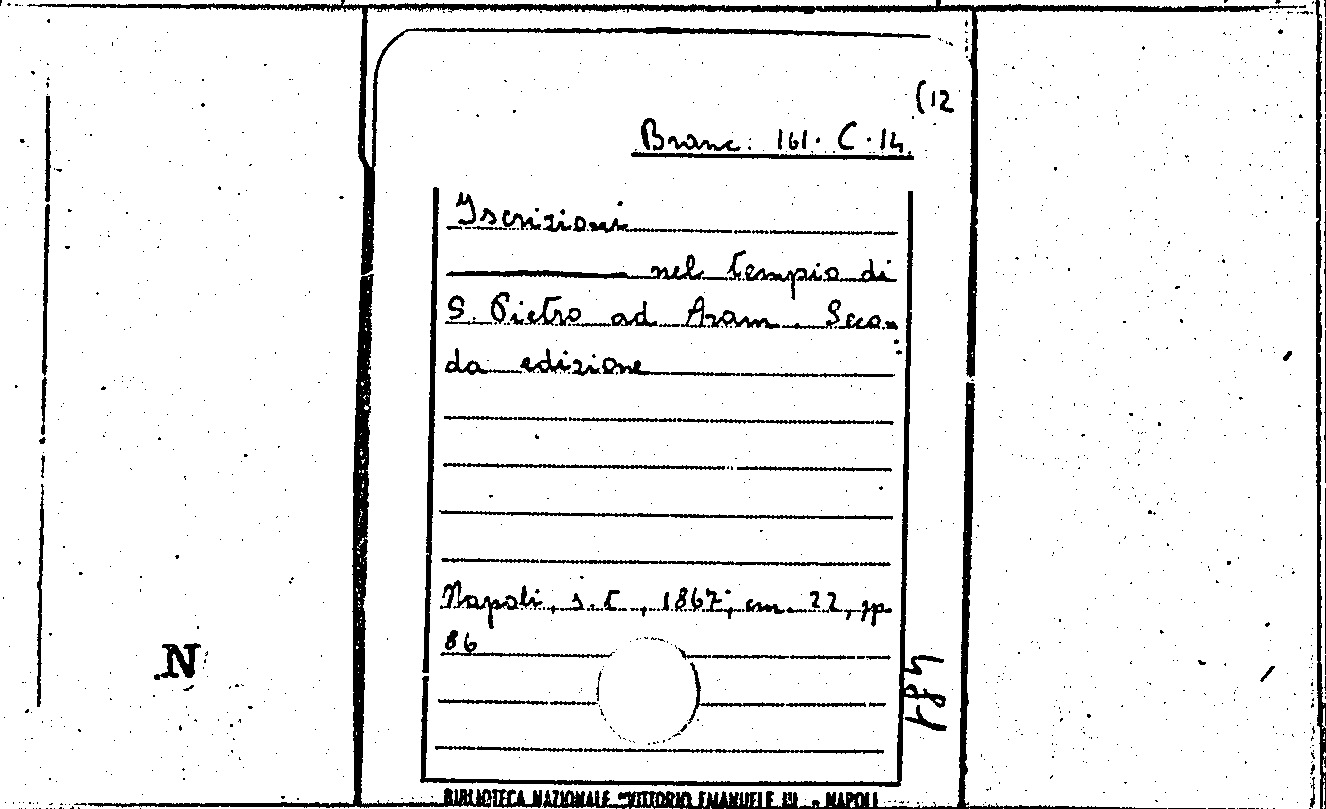 (12
Branc. 161. C. 14.
Iscrizioni
nel tempio di
S. Pietro ad Aram. Secon
da edizione
Napoli, s. t., 1867; cm. 22, pp.
86
484
N
BIBLIOTECA NAZIONALE "VITTORIO EMANUELE III" - NAPOLI